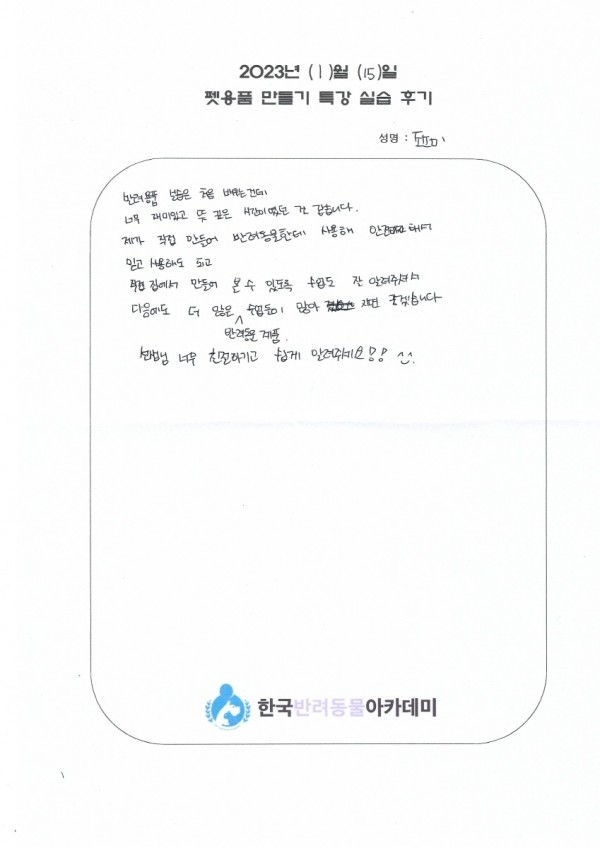 2023년 (1)월 (15)일
펫용품 만들기 특강 실습 후기
성명 :
반려용품 실습은 처음 배우는건데
너무 재미있고 뜻 깊은 시간이였던 것 같습니다.
제가 직접 만들어 반려동물한테 사용해
믿고 사용해도 되고
집에서 만들어 볼 수 있도록 수업도 잘 알려주셔서
다음에도 더 많은 수업들이 많아 지면 좋겠습니다
반려동물 제품.
선생님 너무 친절하기고 쉽게 알려주세요!! ^^
한국반려동물아카데미